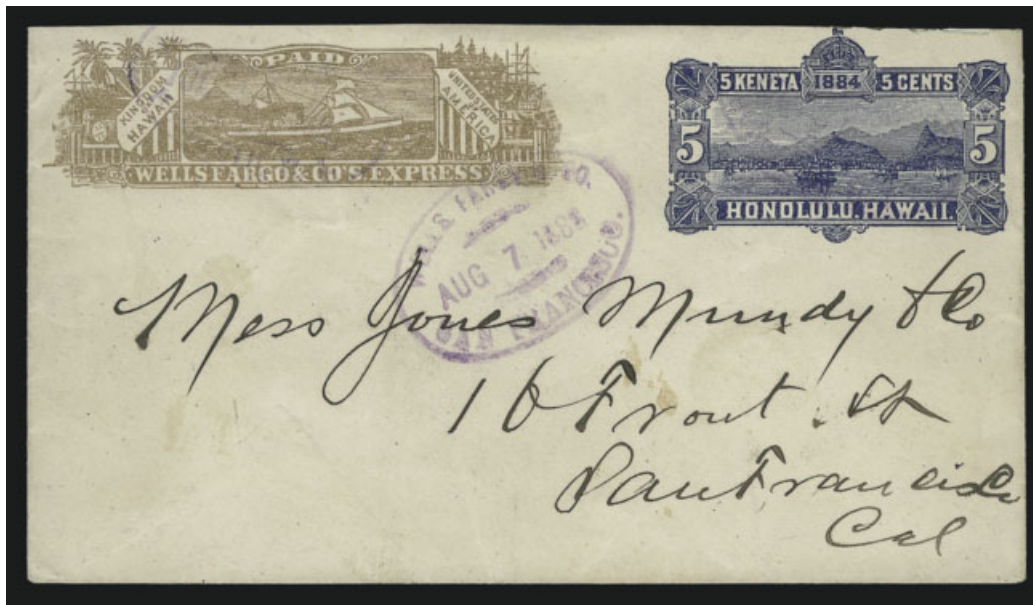 PAID
KINGDOM HAWAII
UNITED STATES AMERICA
WELLS FARGO & CO'S. EXPRESS
5 KENETA 1884 5 CENTS
5 5
HONOLULU, HAWAII.
WELLS, FARGO & CO.
AUG 7 1884
SAN FRANCISCO.
Mess Jones Mundy & Co
16 Front St
San Francisco
Cal